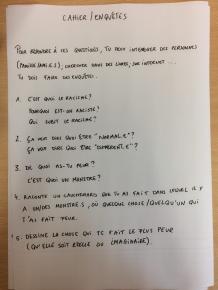 CAHIER / ENQUÊTES
POUR RÉPONDRE À CES QUESTIONS, TU PEUX INTERROGER DES PERSONNES
(FAMILLE / AMI.E.S), CHERCHER DANS DES LIVRES, SUR INTERNET ...
TU DOIS FAIRE DES ENQUÊTES.
1. C'EST QUOI LE RACISME?
POURQUOI EST-ON RACISTE?
QUI SUBIT LE RACISME?
2. ÇA VEUT DIRE QUOI ÊTRE "NORMAL.E"?
ÇA VEUT DIRE QUOI ÊTRE "DIFFÉRENT.E"?
3. DE QUOI AS-TU PEUR?
C'EST QUOI UN MONSTRE?
4. RACONTE UN CAUCHEMARD QUE TU AS FAIT DANS LEQUEL IL Y
A UN/DES MONSTRE.S, OÙ QUELQUE CHOSE/QUELQU'UN QUI
T'AS FAIT PEUR.
5. DESSINE LA CHOSE QUI TE FAIT LE PLUS PEUR
(QU'ELLE SOIT RÉELLE OU IMAGINAIRE).